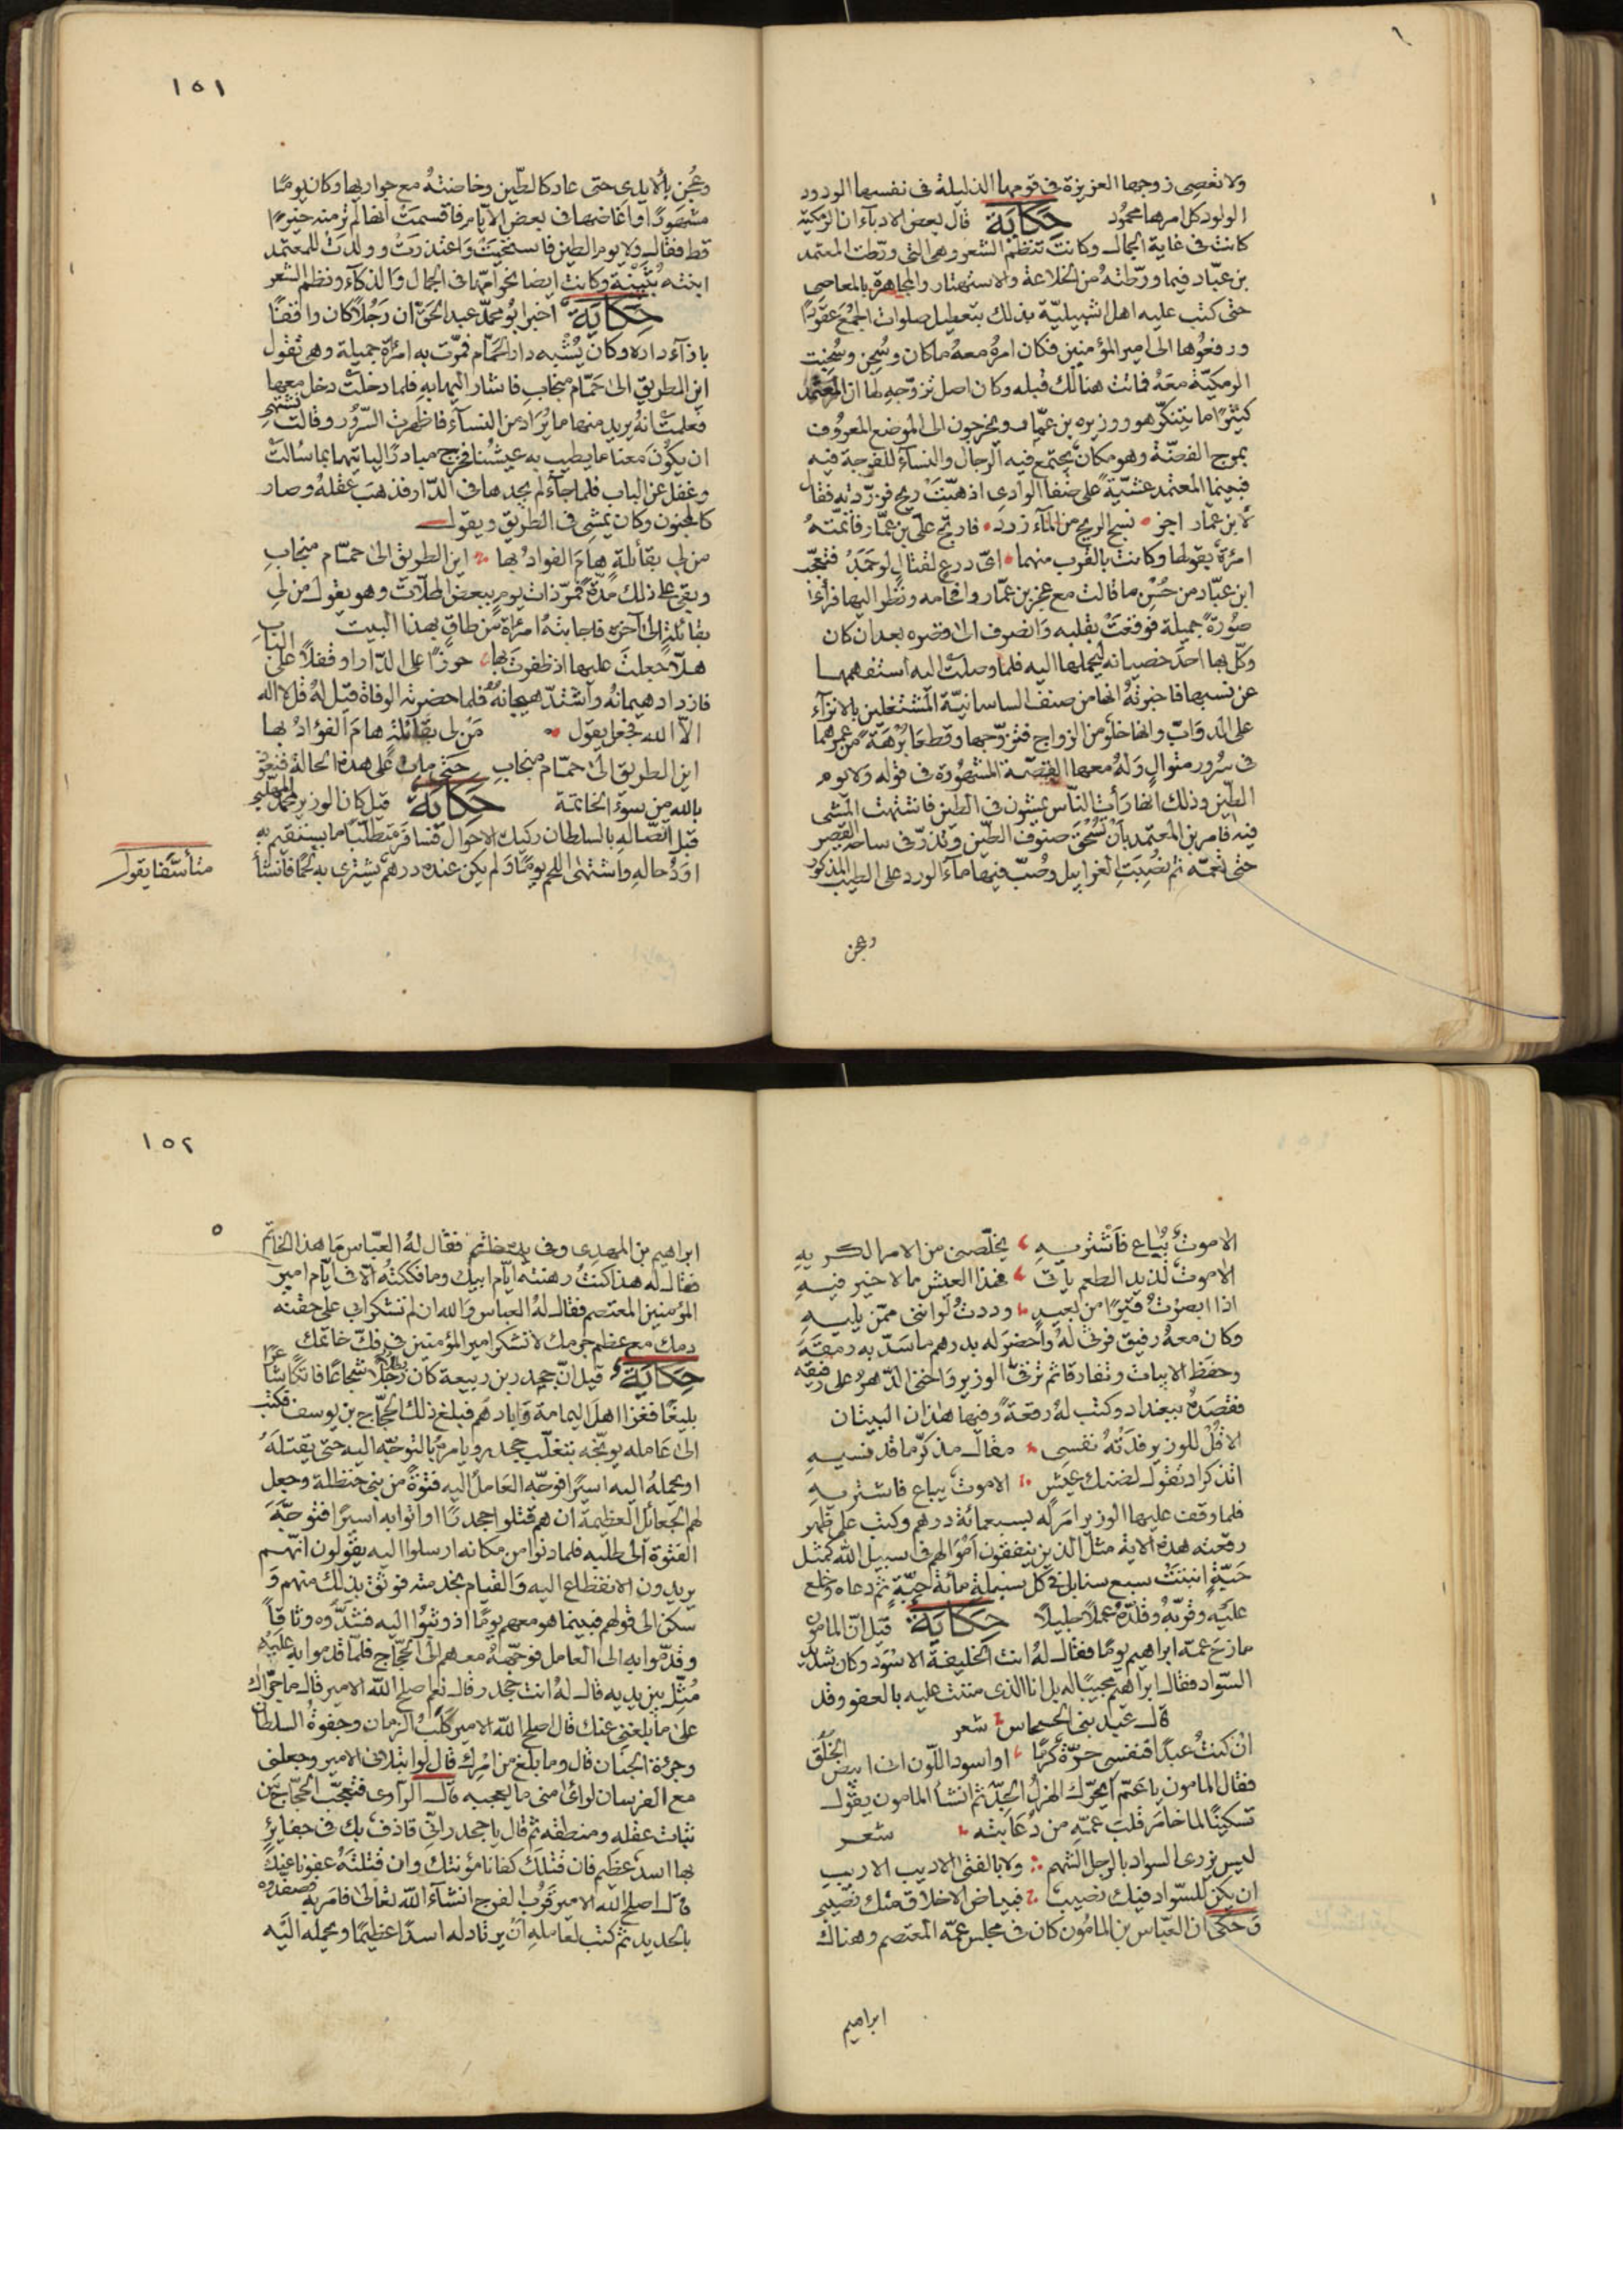 ولا تعصى زوجها العزيزة فى قومها الذليلة فى نفسها الودود
الولود كل امرها محمود حكاية قال بعض الادباء ان الرمكية
كانت فى غاية الجمال وكانت تنظم الشعر وهى التى ورّطت المعتمد
بن عبّاد فيما ورّطته من الخلاعة والاستهتار والمجاهرة بالمعاصى
حتى كتب عليه اهل اشبيليّة بذلك بتعطيل صلوات الجمع عقودًا
ورفعوها الى امير المؤمنين فكان امره معه ماكان وسجن وسجنت
الرمكيّة معه فماتت هنالك قبله وكان اصل تزوّجه لها ان المعتمد
كثيرًا ما يتنكّر هو ووزيره بن عمّار ويخرجون الى الموضع المعروف
بمرج الفضّة وهو مكان يجتمع فيه الرجال والنسآء للفرجة فيه
فبينما المعتمد عشيّة على ضفا الوادى اذ هبّت ريح فزرّدته فقال
لابن عمّار اجز نسج الريح من المآء زرد فارتج على بن عمّار فاتمّته
امرءة بقولها وكانت بالقرب منهما اىّ درع لقتال لو جمد فتعجّب
ابن عبّاد من حسن ما قالت مع عجز بن عمّار وافحامه ونظر اليها فرأى
صورة جميلة فوقعت بقلبه وانصرف الى قصره بعد ان كان
وكّل بها احد خصيانه ليحملها اليه فلما وصلت اليه استفهمها
عن نسبها فاخبرته انها من صنف الساسانيّة المشتغلين بالانزآء
على الدوابّ وانها خلو من الزواج فتزوّجها وقطعا برهة من عمرهما
فى سرور متوال وله معها القصّة المشهورة فى قوله ولا يوم
الطين وذلك انها رأت النّاس يمشون فى الطين فاشتهت المشى
فيه فامر بن المعتمد بأن تسحق صنوف الطّين وتذرّ فى ساحة القصر
حتى تعمّه ثم نصبت الغرابيل وصبّ فيها مآء الورد على الطيب المذكور
وعجن
١٥١
وعجن بالايدى حتى عاد كالطّين وخاضته مع جواريها وكان يومًا
مشهودًا واغاضها فى بعض الايّام فاقسمت انها لم تر منه خيرًا
قط فقال ولا يوم الطين فاستحيت واعتذرت وولدت للمعتمد
ابنته بثينة وكانت ايضا نحو امّها فى الجمال والذكآء ونظم الشعر
حكاية اخبر ابو محمّد عبد الحق ان رجلاً كان واقفًا
باذآء داره وكان يشبه دار الحمّام فمرّت به امرءة جميلة وهى تقول
اين الطريق الى حمّام منجاب فاشار اليها به فلما دخلت دخل معها
فعلمت انه يريد منها ما يراد من النسآء فاظهرت السّرور وقالت نشتهى
ان يكون معنا ما يطيب به عيشنا فخرج مبادرًا لياتيها بما سالت
وغفل عن الباب فلما جآء لم يجدها فى الدّار فذهب عقله وصار
كالمجنون وكان يمشى فى الطّريق ويقول
من لى بقائلة هام الفواد بها اين الطريق الى حمّام منجاب
وبقى على ذلك مدّة فمرّ ذات يوم ببعض المحلّات وهو يقول من لى
بقائلة الى آخره فاجابته امرأة من طاق بهذا البيت
هلّا جعلت عليها اذ ظفرت بها حوزًا على الدّار او قفلاً على الباب
فازداد هيمانه واشتدّ هيجانه فلما احضرته الوفاة قيل له قل لا اله
الّا الله فجعل يقول من لى بقائلة هام الفؤاد بها
اين الطريق الى حمّام منجاب حتى مات على هذه الحالة فنعوذ
بالله من سوء الخاتمة حكاية قيل كان الوزير محمد المهلبى
قبل اتّصاله بالسلطان ركيك الاحوال فسافر متطلّبًا ما يستقيم به
اود حاله واشتهى اللحم يومًا ولم يكن عنده درهم يشترى به لحمًا فانشأ
متأسّفا يقول
الا موت يباع فأشتريه يخلّصنى من الامر الكريه
الا موت لذيد الطعم يأتى فهذا العيش ما لا خير فيه
اذا ابصرت قبرًا من بعيد وددت لوانّنى ممّن يليه
وكان معه رفيق فرثى له واحضر له بدرهم ما سدّ به رمقه
وحفظ الابيات وتفارقا ثم ترقّى الوزير واخنى الدّهر على رفيقه
فقصده ببغداد وكتب له رقعة وفيها هذان البيتان
الا قل للوزير فدته نفسى مقال مذكّر ما قد نسيه
اتذكر اذ تقول لضنك عيش الا موت يباع فاشتريه
فلما وقف عليها الوزير امر له بسبعمائة درهم وكتب على ظهر
رقعته هذه الاية مثل الذين ينفقون أموالهم فى سبيل الله كمثل
حبّة انبتت سبع سنابل فى كل سنبلة مأئة حبّة ثم دعاه وخلع
عليه وقرّبه وقلّده عملاً جليلاً حكاية قيل انّ المامون
مازح عمه ابراهيم يومًا فقال له انت الخليفة الاسود وكان شديد
السّواد فقال ابراهيم مجيبًا له بل انا الذى مننت عليه بالعفو وقد
قال عبد بنى الحسحاس شعر
ان كنت عبدًا فنفسى حرّة كرمًا او اسود اللّون انى ابيض الخلق
فقال المامون يا عمّ ايحرّك الهزل الجدّ ثم انشأ المامون يقول
تسكينًا لما خامر قلب عمّه من دعابته شعر
ليس يزرى السواد بالرجل الشهم ولا بالفتى الاديب الاريب
ان يكن للسّواد فيك نصيب فبياض الاخلاق منك نصيبى
وحكى ان العبّاس بن المامون كان فى مجلس عمّه المعتصم وهناك
ابراهيم
١٥٢
ابراهيم بن المهدى وفى يده خاتم فقال له العبّاس ما هذا الخاتم
فقال له هذا كنت رهنته ايّام ابيك وما فككته الّا فى ايّام امير
المؤمنين المعتصم فقال له العباس والله ان لم تشكر ابى على حقنه
دمك مع عظم جرمك لا تشكر امير المؤمنين فى فكّ خاتمك
حكاية قيل انّ جحدر بن ربيعة كان رجلا شجاعًا فاتكًا شاعرًا
بليغًا فغزا اهل اليمامة وابادهم فبلغ ذلك الحجّاج بن يوسف فكتب
الى عامله يوبّخه بتغلّب جحدر ويامره بالتوجّه اليه حتى يقتله
او يحمله اليه اسيرًا فوجّه العامل اليه فتوة من بنى حنظلة وجعل
لهم الجعائل العظيمة ان هم قتلوا جحدرًا او اتوا به اسيرًا فتوجّه
الفتوة الى طلبه فلما دنوا من مكانه ارسلوا اليه يقولون انّهم
يريدون الانقطاع اليه والقيام بخدمته فوثق بذلك منهم و
سكن الى قولهم فبينما هو معهم يومًا اذ وثبوا اليه فشدّوه وثاقاً
وقدّموا به الى العامل فوجّهه معهم الى الحجّاج فلمّا قدموا به عليه
مثّل بين يديه قال له انت جحدر قال نعم اصلح الله الامير قال ما جرّاك
على ما بلغنى عنك قال اصلح الله الامير كلب الزمان وجفوة السلطان
وجرءة الجنان قال وما بلغ من امرك قال لو ابتلانى الامير وجعلنى
مع الفرسان لراى منى ما يعجبه قال الراوى فتعجّب الحجّاج من
ثبات عقله ومنطقه ثم قال يا جحدر انّى قاذف بك فى حفاير
بها اسد عظيم فان قتلك كفانا مؤنتك وان قتلته عفونا عنك
قال اصلح الله الامير قرب الفرج انشآء الله تعالى فامر به فصفدوه
بالحديد ثم كتب لعامله ان يرتاد له اسدًا عظيمًا ويحمله اليه